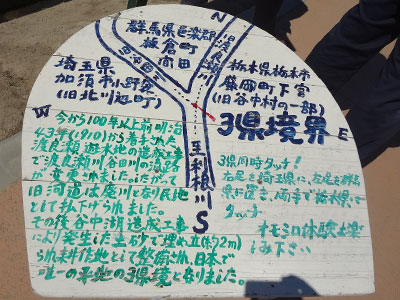 N
群馬県邑楽郡
板倉町
海老瀬
渡良瀬川
栃木県栃木市
藤岡町下宮
(旧谷中村の一部)
埼玉県
加須市小野袋
(旧北川辺町)
3県境界
W
E
至利根川
S
今から100年以上前明治
43年(1910)から着手された
渡良瀬遊水地の造成工事
で渡良瀬川、谷田川の流路
が変更されました。したがって
旧河道は廃川となり民地
として払下げられました。
その後谷中湖造成工事
により発生した土砂で埋め立(約2m)
られ耕作地として整備され、日本で
唯一の平地の3県境となりました。
3県同時タッチ!
右足を埼玉県に、左足を群馬
県に置き、両手で栃木県に
タッチ
オモシロ体験お楽
しみ下さい